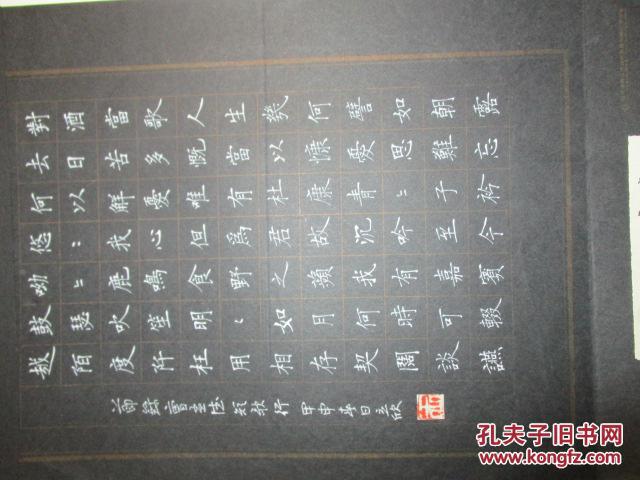 對酒當歌人生幾何譬如朝露
去日苦多慨當以慷憂思難忘
何以解憂唯有杜康青〻子衿
悠〻我心但為君故沉吟至今
呦〻鹿鳴食野之蘋我有嘉賓
鼓瑟吹笙明〻如月何時可輟
越陌度阡枉用相存契闊談讌
節錄曹孟德短歌行甲申年
孔夫子旧书网
www.kongfz.com